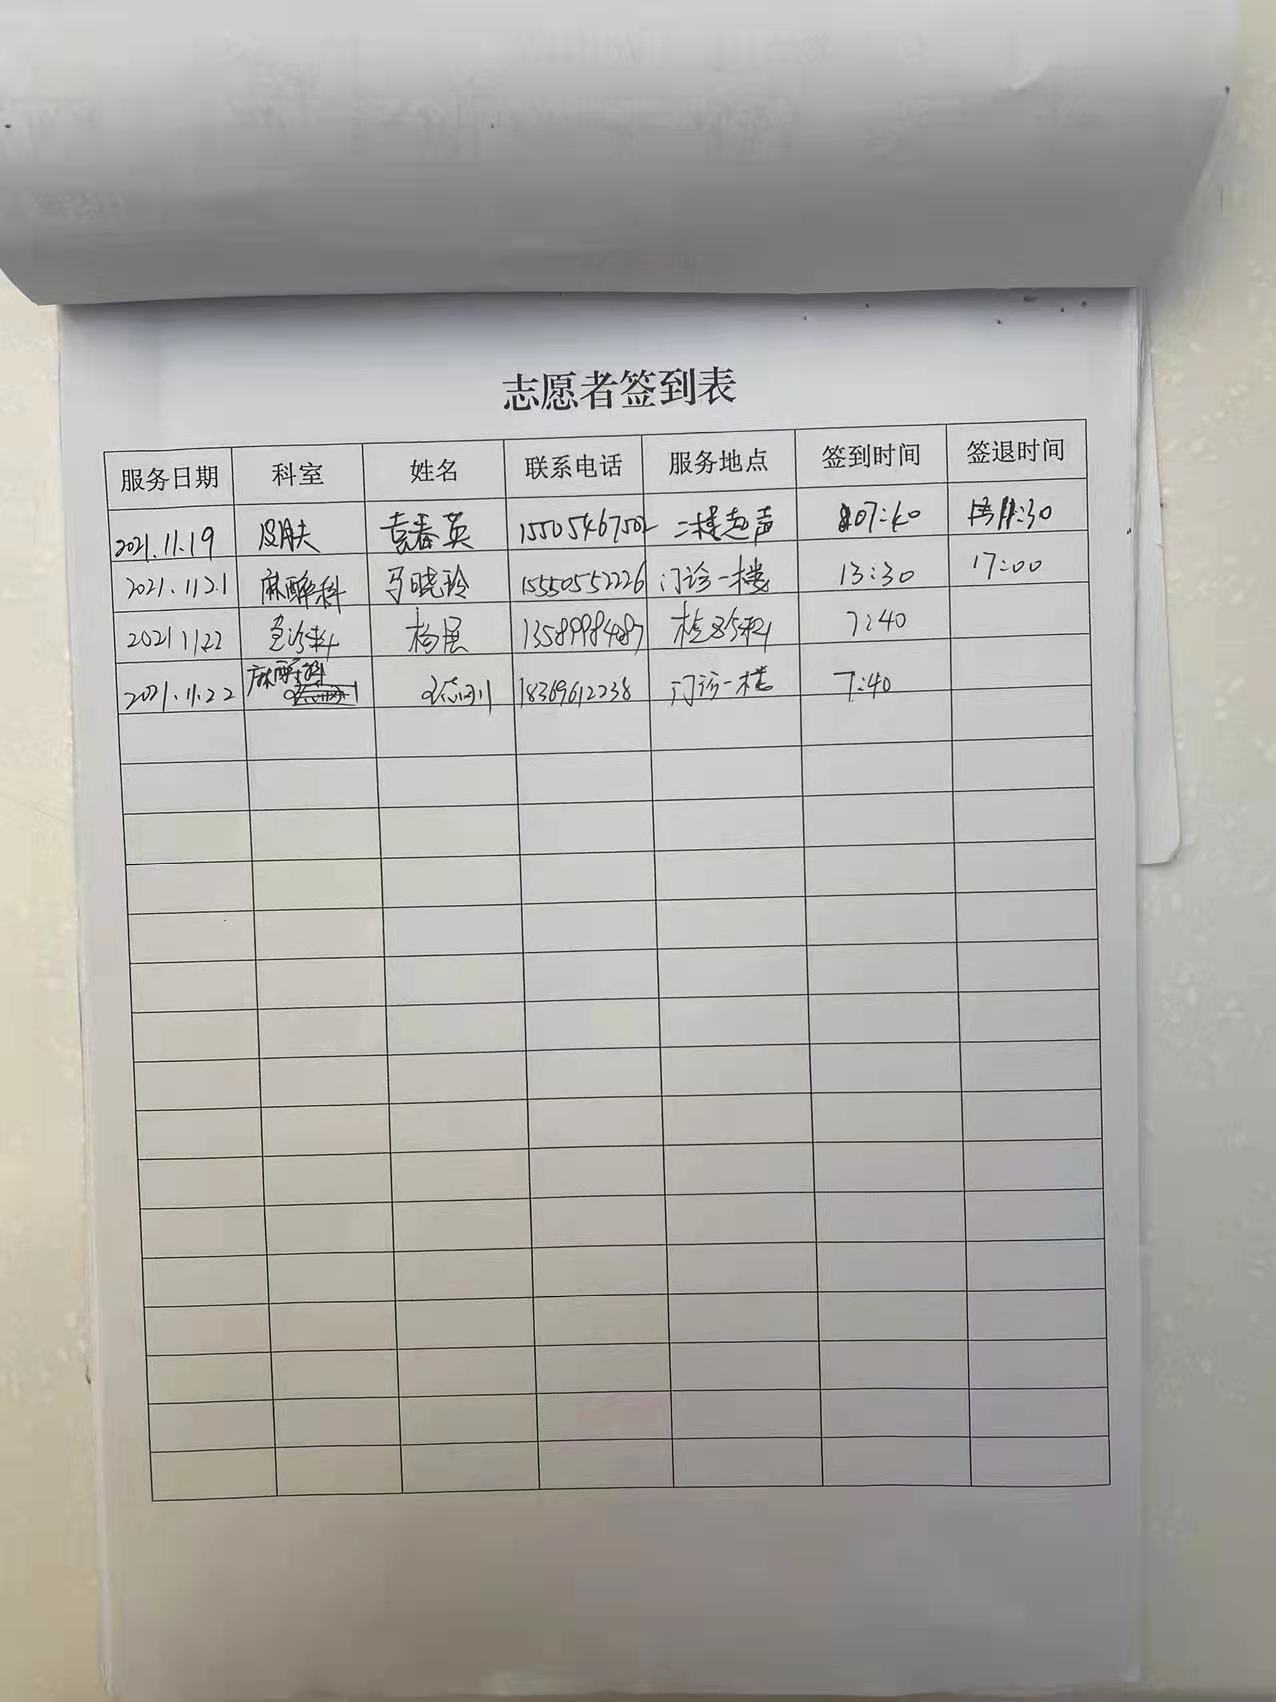 志愿者签到表
服务日期 科室 姓名 联系电话 服务地点 签到时间 签退时间
2021.11.19 皮肤 袁春英 15505467502 二楼超声 07:40 11:30
2021.11.21 麻醉科 马晓玲 15550552226 门诊一楼 13:30 17:00
2021 11.22 急诊科 杨展 13589984087 检验科 7:40
2021.11.22 麻醉科 18369612238 门诊一楼 7:40